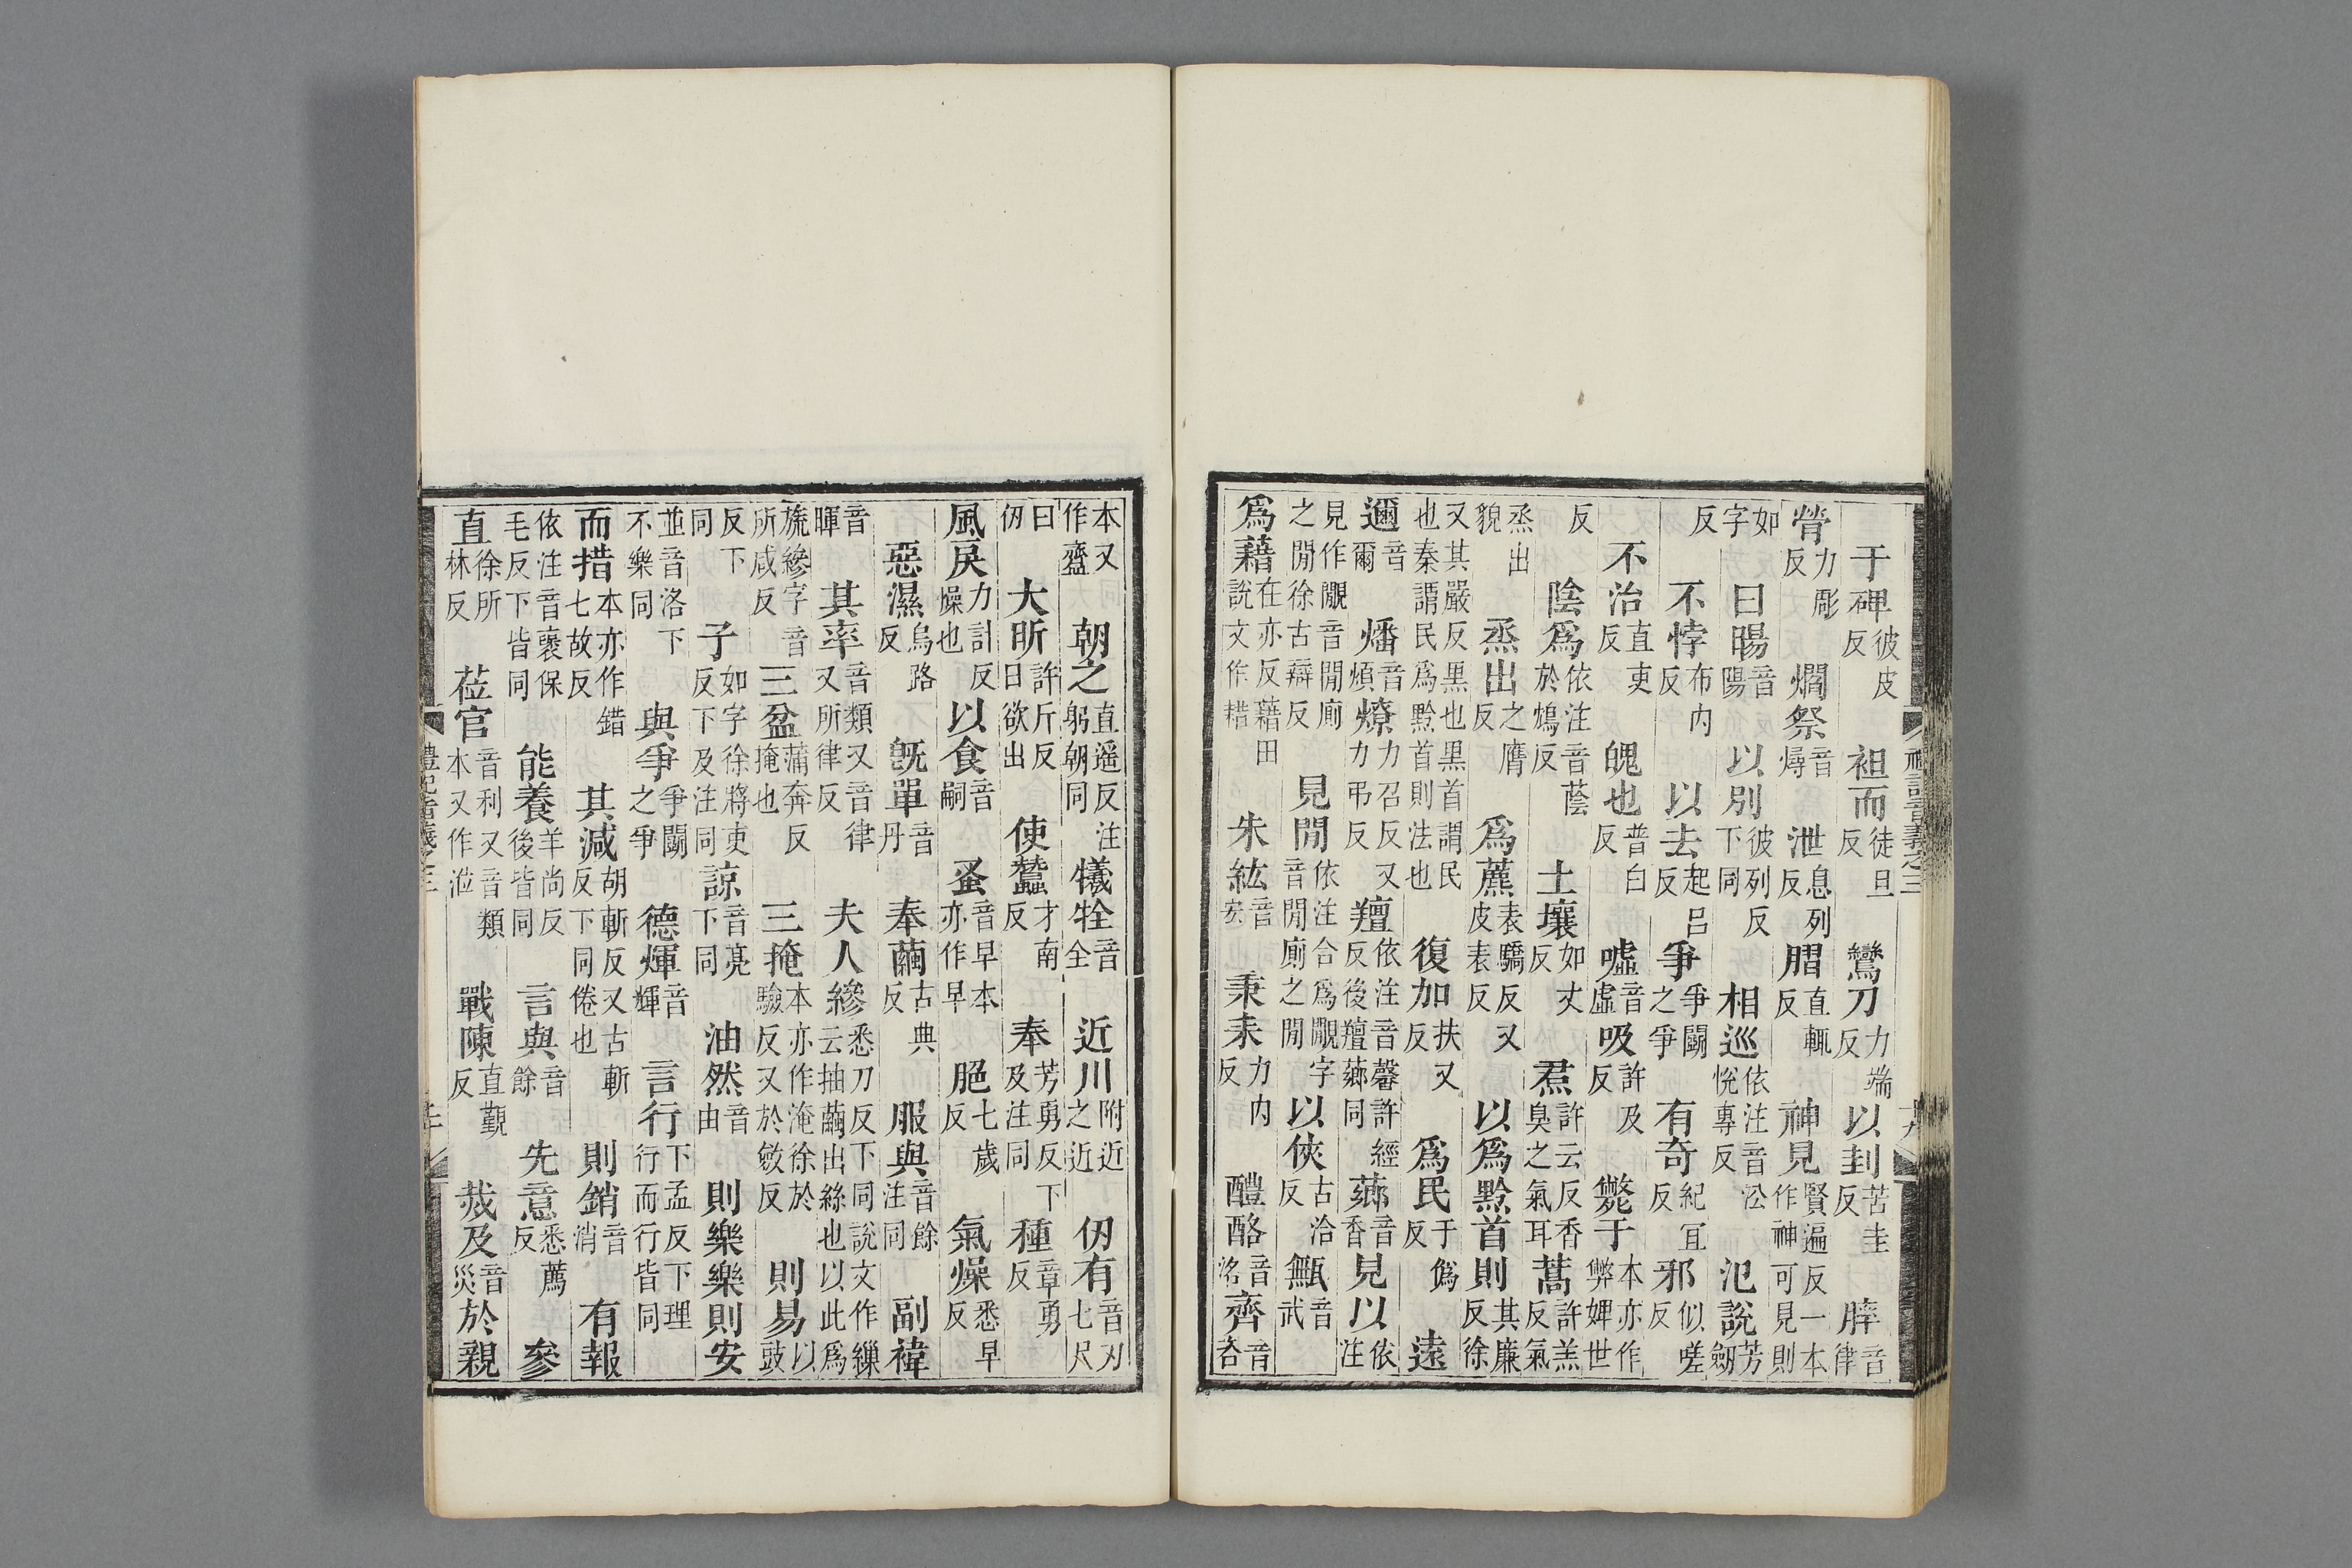 于碑彼皮反袒而徒旦反鸞刀力端反以刲苦圭反膟音律
膋力彫反爓祭音燖泄息列反腽直輒反神見賢遍反一本作神可見則
如字曰暘音陽以別彼列反下同相巡依注音㳂悅專反氾說芳劒
反不悖布内反以去起呂反爭爭鬬之爭有奇紀宜反邪似嗟反
不治直吏反魄也普白反噓音虛吸許及反斃于本亦作弊婢世
反陰爲依注音蔭於鴆反土壤如丈反焄許云反香臭之氣耳蒿許羔反氣
烝出貌烝出之膺反爲藨表驕反又皮表反以爲黔首則其廉反徐
又其嚴反黑也黑首謂民也秦謂民爲黔首則法也復加扶又反爲民于僞反遠
邇音爾燔音煩燎力召反又力弔反羶依注音馨許經反後羶薌同薌音香見以依注
見作覸音閒廁之閒徐古辯反見閒依注合爲覸字音閒廁之閒以俠古洽反甒音武
爲藉在亦反藉田說文作耤朱紘音宏秉耒力内反醴酪音洛齊音咨
本又作齍朝之直遥反注躬朝同犧牷音全近川附近之近仞有音刃七尺
曰仞大昕許斤反日欲出使蠶才南反奉芳勇反下及注同種章勇反
風戾力計反燥也以食音嗣蚤音早本亦作早脃七歲反氣燥悉早反
惡濕烏路反旣單音丹奉繭古典反服與音餘注同副褘
音暉其率音類又音律又所律反夫人繅悉刀反下同說文作繅云抽繭出絲也以此爲
旒縿字音所咸反三盆蒲奔反掩也三掩本亦作淹徐於驗反又於斂反則易以豉
反下同子如字徐將吏反下及注同諒音亮下同油然音由則樂樂則安
並音洛下不樂同與爭爭鬬之爭德煇音輝言行下孟反下理行而行皆同
而措本亦作錯七故反其減胡斬反又古斬反下同倦也則銷音消有報
依注音襃保毛反下皆同能養羊尚反後皆同言與音餘先意悉薦反參
直徐所林反莅官音利又音類本又作涖戰陳直覲反烖及音災於親
禮記音義之三